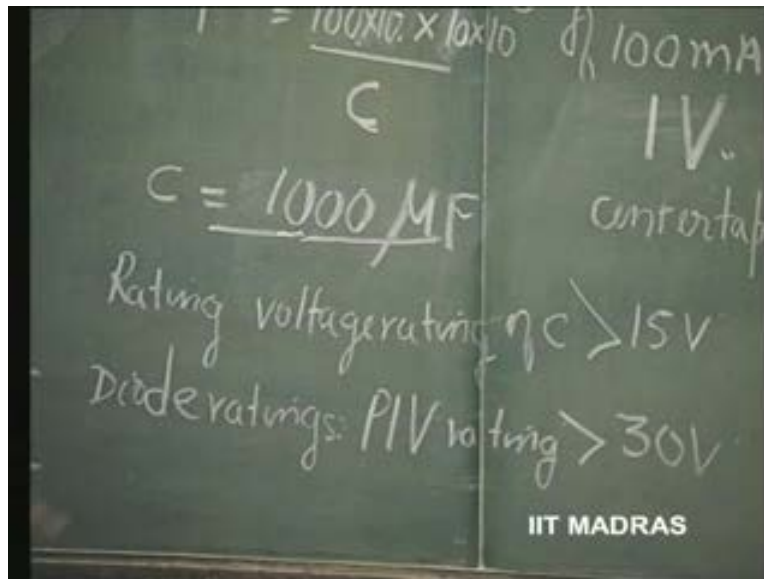 1 = 100x10 x 10x10 of 100mA
C 1V.
C = 1000 μF centertap
Rating voltage rating of C > 15V
Diode ratings: PIV rating > 30V
IIT MADRAS